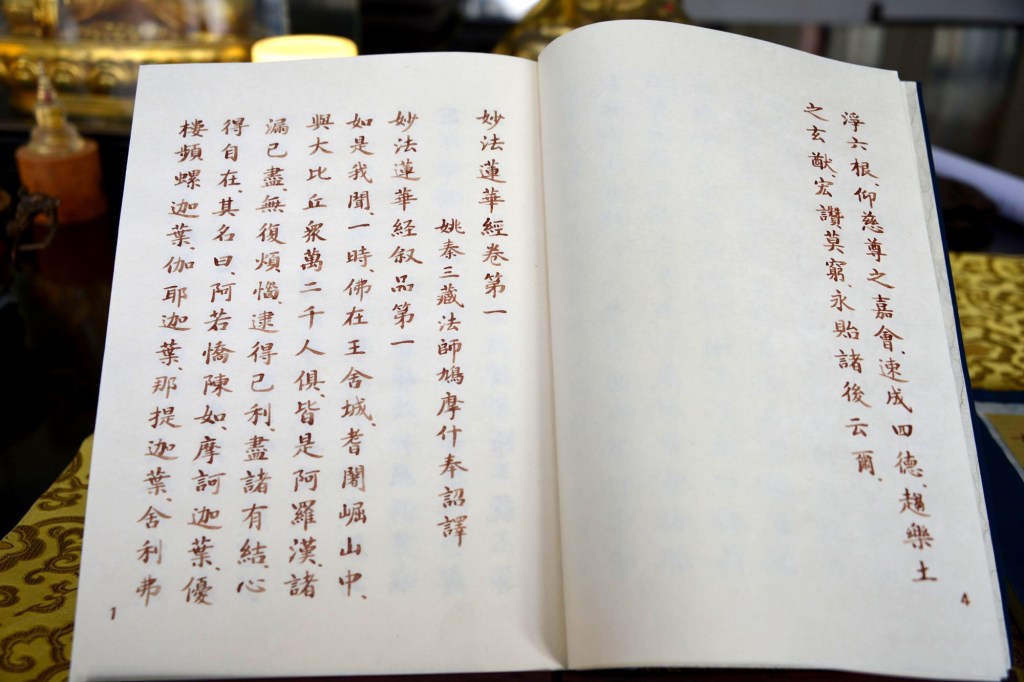 淨六根、仰慈尊之嘉會、速成四德、趨樂土
之玄猷、宏讚莫窮、永貽諸後云爾、
4
妙法蓮華經卷第一
姚秦三藏法師鳩摩什奉詔譯
妙法蓮華経叙品第一
如是我聞、一時、佛在王舍城、耆闍崛山中、
與大比丘眾萬二千人俱、皆是阿羅漢、諸
漏已盡、無復煩惱、逮得己利、盡諸有結、心
得自在、其名曰、阿若憍陳如、摩訶迦葉、優
樓頻螺迦葉、伽耶迦葉、那提迦葉、舍利弗
1